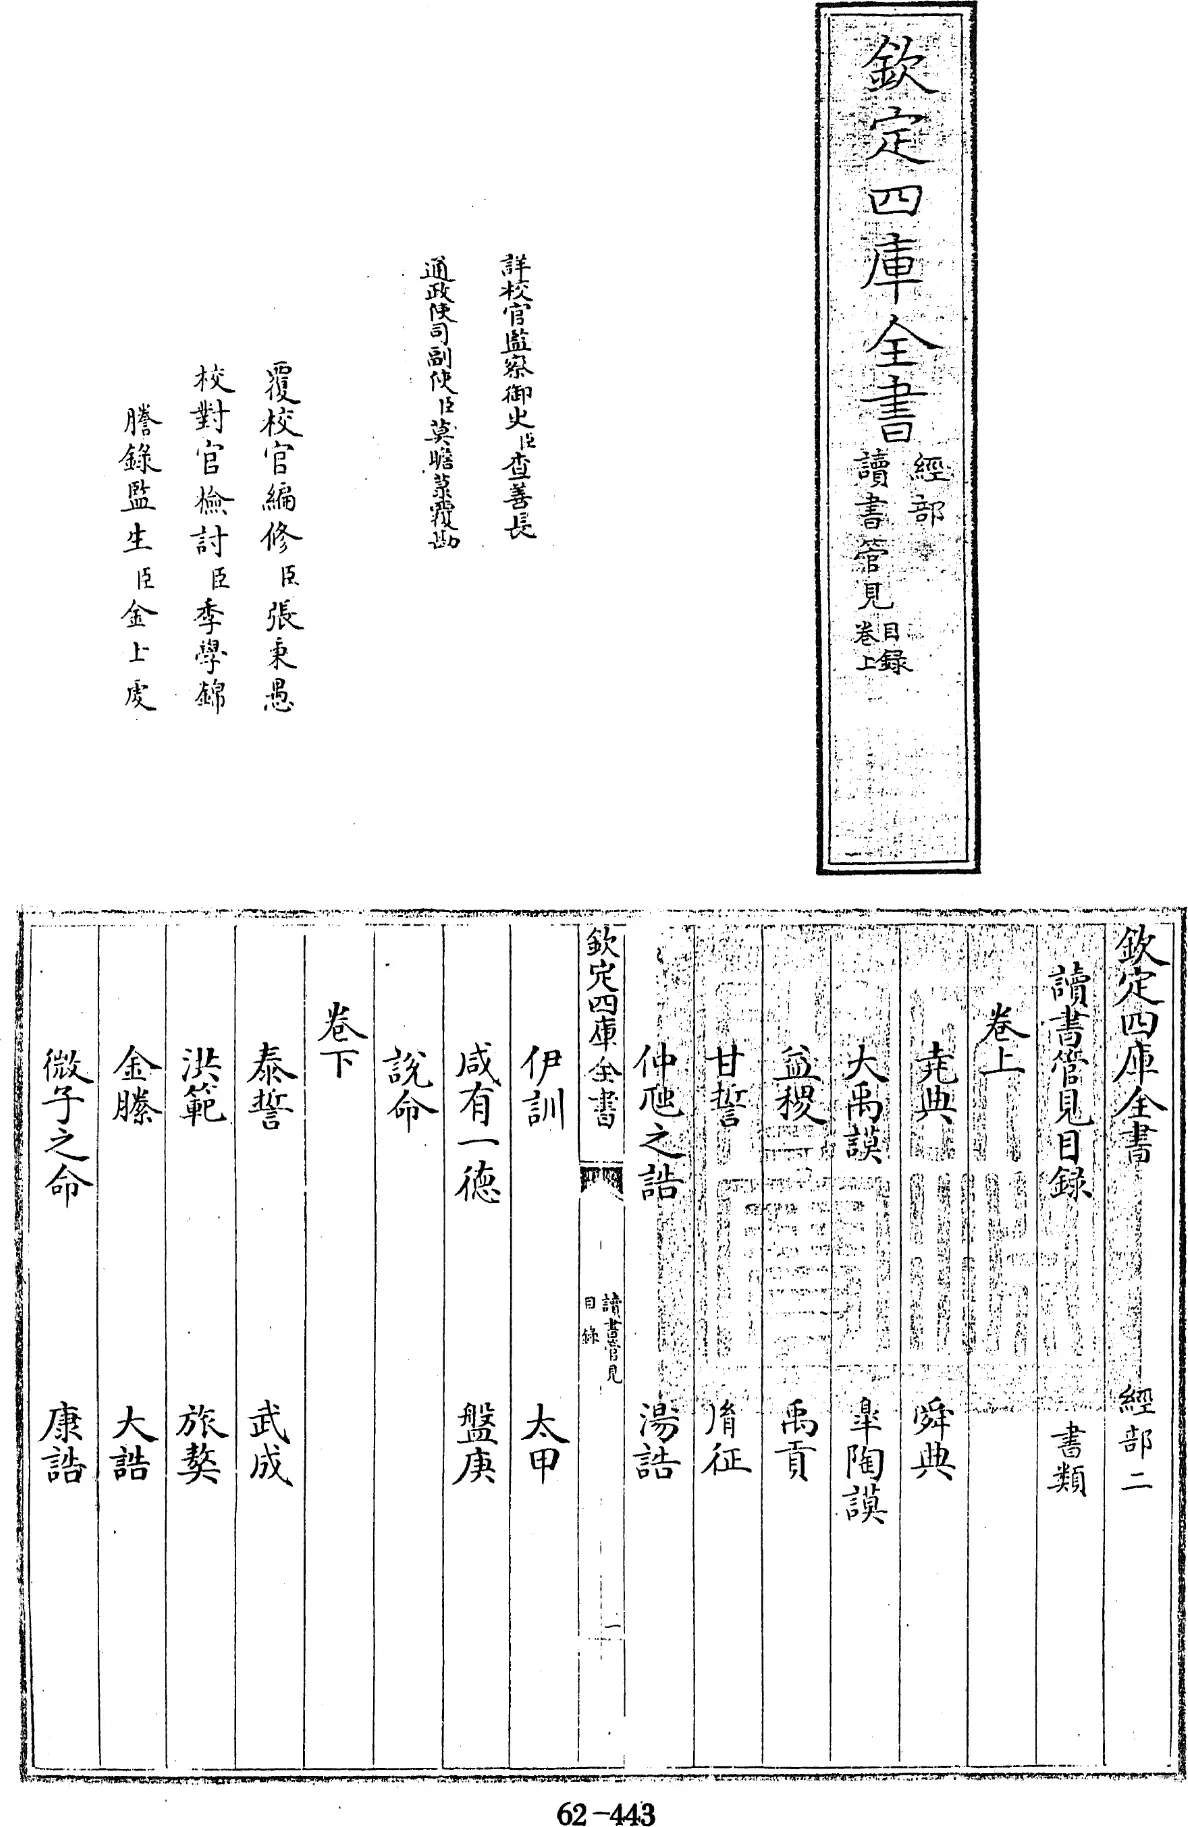 欽定四庫全書
經部
讀書管見
目録
卷上
詳校官監察御史臣查善長
通政使司副使臣莫瞻菉覆勘
覆校官編修臣張秉愚
校對官檢討臣季學錦
謄録監生臣金上虔
欽定四庫全書 經部二
讀書管見目録 書類
卷上
堯典 舜典
大禹謨 皐陶謨
益稷 禹貢
甘誓 胤征
仲虺之誥 湯誥
欽定四庫全書
讀書管見
目録
一
伊訓 太甲
咸有一德 盤庚
說命
卷下
泰誓 武成
洪範 旅獒
金縢 大誥
微子之命 康誥
62-443